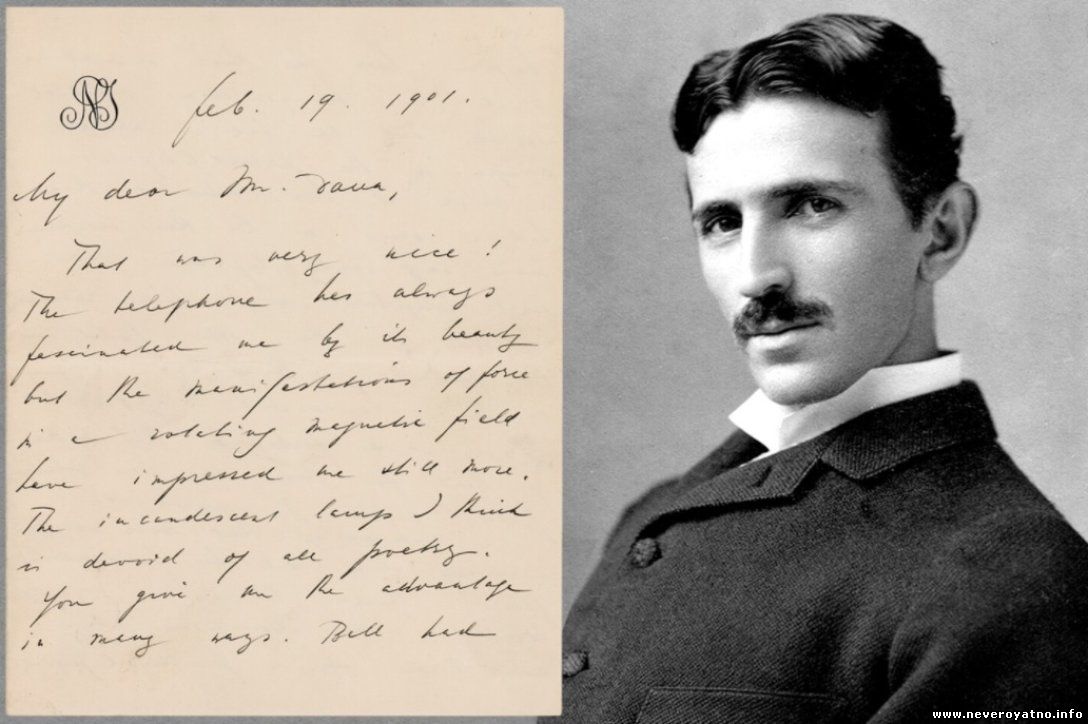 NT
Feb. 19. 1901.
My dear Mr. Dana,
That was very nice!
The telephone has always
fascinated me by its beauty
but the manifestations of force
in a rotating magnetic field
have impressed me still more.
The incandescent lamps I think
is devoid of all poetry.
You give me the advantage
in many ways. Bell had
www.neveroyatno.info